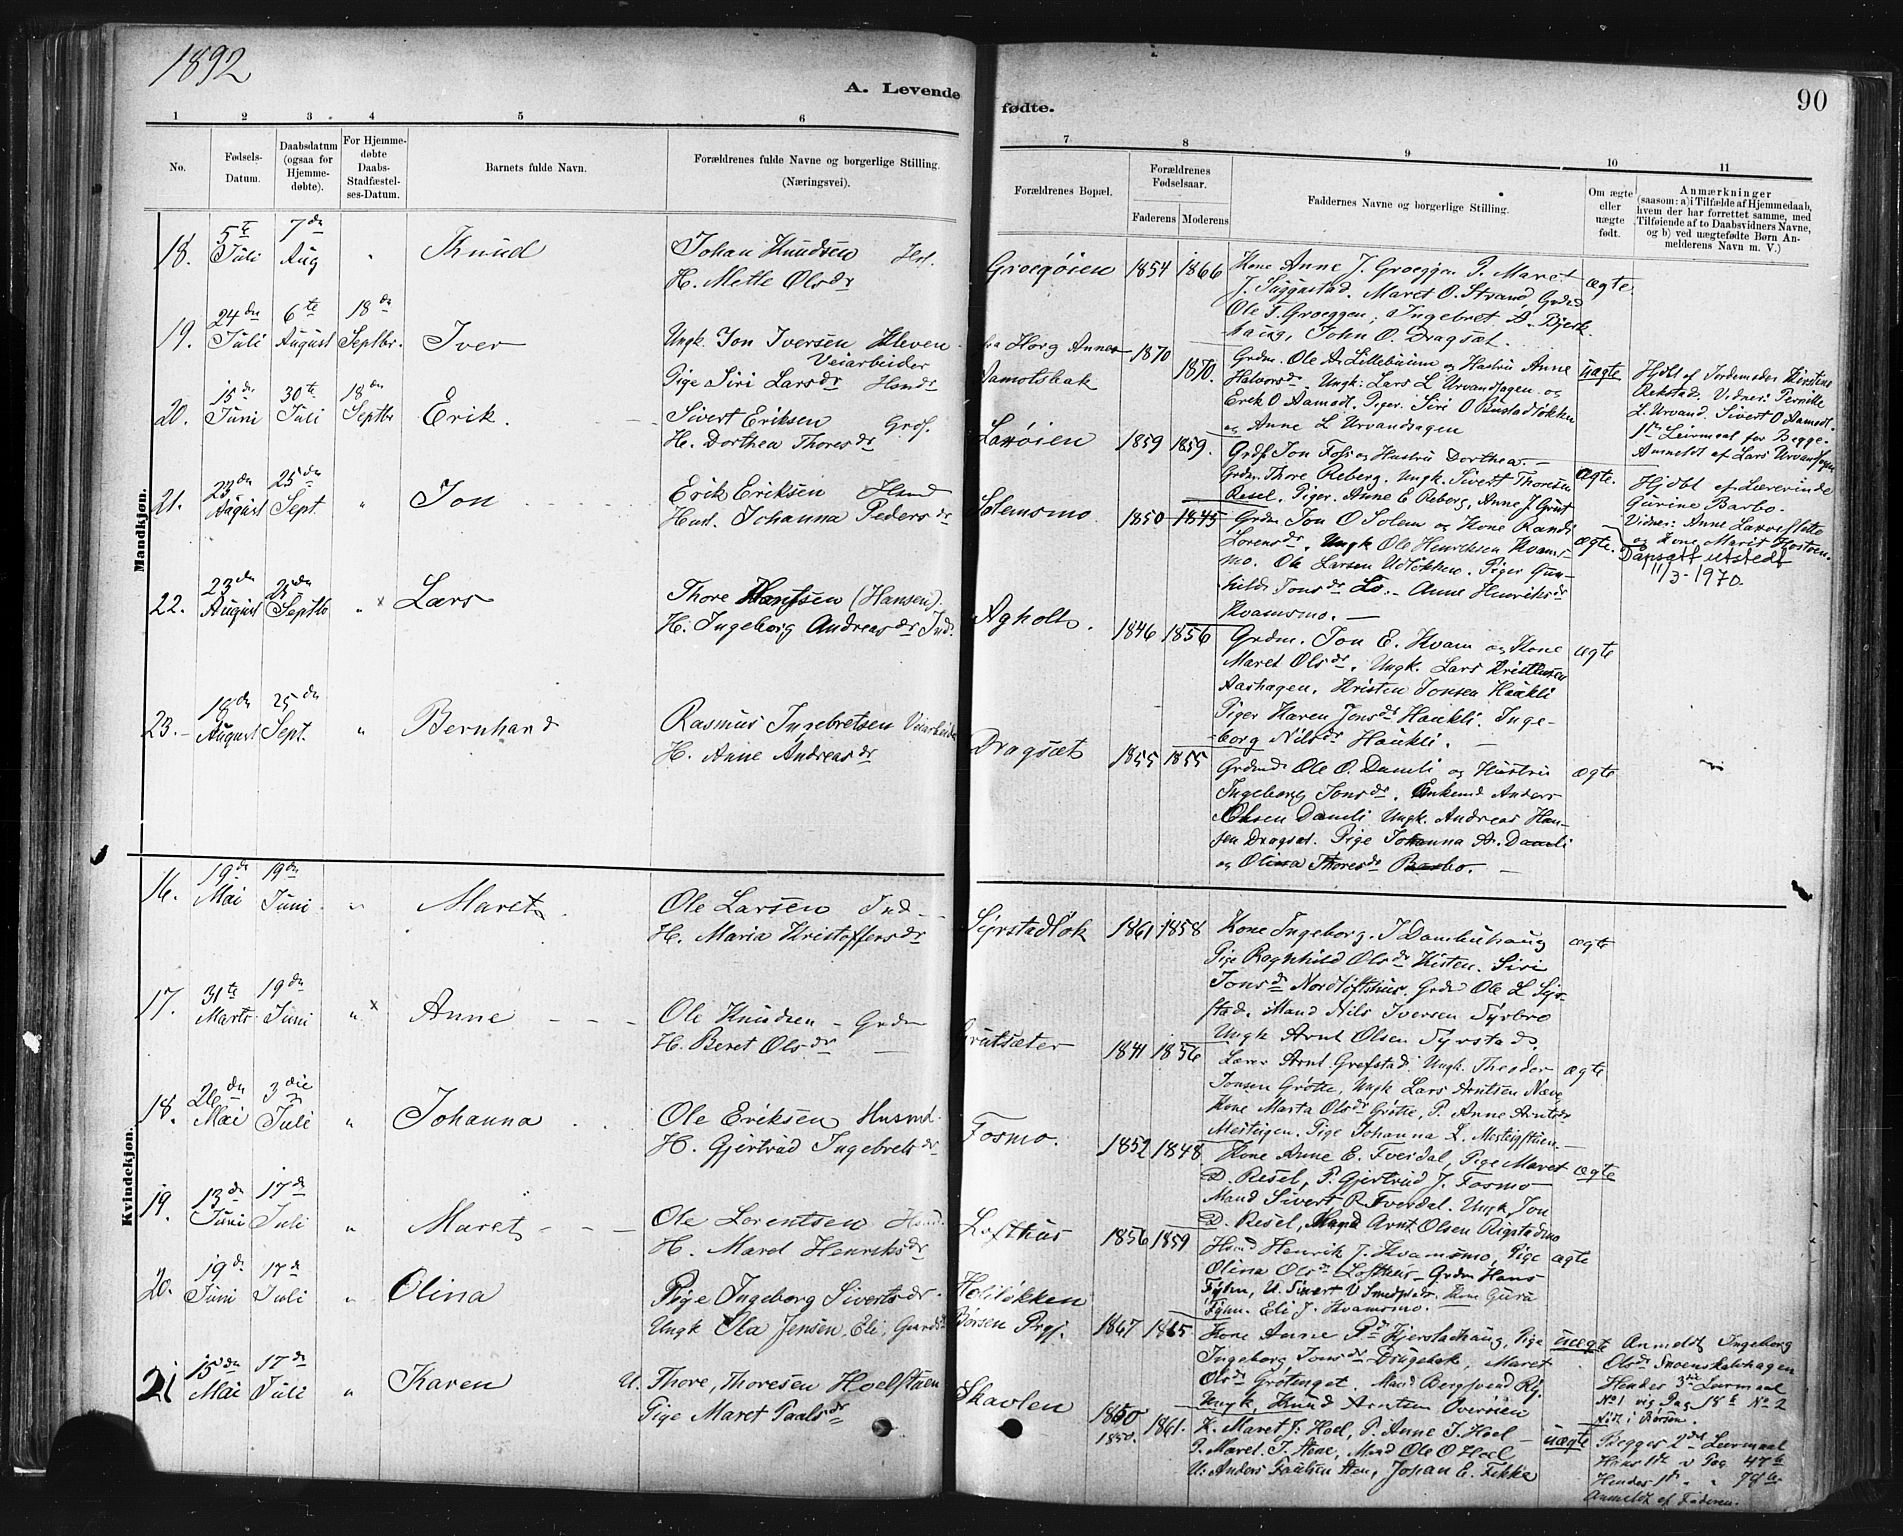 1892
A. Levende
fødte.
90
1 2 3 4 5 6
7 8 9 10 11
No.
Fødsels-
Datum.
Daabsdatum
(ogsaa for
Hjemme-
døbte).
For Hjemme-
døbte
Daabs-
Stadfæstel-
ses-Datum.
Barnets fulde Navn.
Forældrenes fulde Navne og borgerlige Stilling.
(Næringsvei).
Forældrenes Bopæl.
Forældrenes
Fødselsaar.
Faderens Moderens
Faddernes Navne og borgerlige Stilling.
Om ægte
eller
uægte
født.
Anmærkninger
(saasom: a) i Tilfælde af Hjemmedaab,
hvem der har forrettet samme, med
Tilføiende af to Daabsvidners Navne,
og b) ved uægtefødte Børn An-
melderens Navn m. V.)
Mandkjøn.
18. 5te Juli 7de Aug " Knud
Johan Knudsen
H. Mette Olsdr
Groegøien 1854 1866
Kone Anne J. Groeggen P. Maret
Maret O. Strand
Ole T. Groeggen, Ingebret
John O. Dragsæt.
ægte.
19. 24de Juli 6te August 18de Septbr. Iver
Ungk. Jon Iversen Kleven
Veiarbeider
Pige Siri Larsdr
1870 1870.
Grdm. Ole A. Lillebuum og Hustru Anne
Halvorsdr. Ungk: Lars L Urvandsagen og
Erik O Aamodt. Piger: Siri O
og Anne L Urvandsagen
uægte
Hjdbt af Jordemoder Kirstine
Rekstad. Vidner: Pernille
L. Urvand. Sivert O Aamodt.
1ste Leirmaal for Begge.
Anmeldt af Lars Urvandsagen
20. 15de Juni 30te Juli 18de Septbr Erik.
Sivert Eriksen
H. Dorthea Thoresdr
Larøien 1859 1859.
Jon Foss og Hustru Dorthea.
Grdm. Thore Reberg. Ungk. Sivert Thoresen
Resel. Piger. Anne E Reberg, Anne J. Grut
ægte.
Hjdbt af Lærerinde
Gurine Barbo.
Vidner: Anne
og Kone Marit
21. 23de August 25de Sept. " Jon
Erik Eriksen
Hust. Johanna Pedersdr
Solemsmo. 1850 1845
Grdm Jon O Solem og Kone Randi
Lorensdr. Ungk Ole Henriksen Kvams-
mo. Ole Larsen Udløkken. Piger Gun-
hild Jonsdr Lo. Anne Henriksdr
Kvamsmo.
ægte.
Dåpsatt utstedt
11/3-1970.
22. 23de August 25de Septb " x Lars
Thore Hansen (Hansen).
H. Ingeborg Andreasdr Ind.
Agholt. 1846 1856
Grdm. Jon E. Kvam og Kone
Maret Olsdr. Ungk. Lars
Aashagen, Kristen Jonsen Haukli
Piger Karen Jonsdr Haukli. Inge-
borg Nilsdr Haukli.
ægte
23. 18de August 25de Sept. " Bernhard
Rasmus Ingebretsen Veiarbeider
H. Anne Andreasdr
Dragsæt 1855 1855
Grdmd Ole O. Damli og Hustru
Ingeborg Jonsdr. Enkemd Anders
Olsen Damli Ungk. Andreas Han-
sen Dragsæt. Pige Johanna A. Damli
og Olina Thoresdr Barbo.
ægte
Kvindekjøn.
16. 19de Mai 19de Juni " Maret
Ole Larsen Ind
H. Maria Kristoffersdr
Syrstadløk 1861 1858
Kone Ingeborg. J Dambuhaug
Pige Ragnhild Olsdr Kisten. Siri
Jonsdr Nordløfthus. Grdm Ole L Syr-
stad. Mand Nils Iversen
Ungk Arnt Olsen Syrstad.
ægte
17. 31te Marts 19de Juni " x Anne
Ole Knudsen Grdm
H. Beret Olsdr
Grutsæter 1841 1856
Lærer Arnt Grefstad Ungk. Theodor
Jonsen Grøtte, Ungk Lars Arntsen Næve,
Kone Marta Olsdr Grøtte, P. Anne Arntsdr
Mestuen. Pige Johanna L.
ægte
18. 26de Mai 3die Juli " Johanna
Ole Eriksen Husmd.
H. Gjertrud Ingebretsdr
Fosmo. 1852 1848
Kone Anne E. Pige Maret
D. Resel, P. Gjertrud J. Fosmo
Mand Sivert R Ungk, Jon
D. Resel, Mand Arnt Olsen Rigstadmo
ægte
19. 13de Juni 17de Juli " Maret
Ole Lorentsen
H. Maret Henriksdr
Lofthus 1856 1859
Henrik J. Kvamsmo, Pige
Olina Olsdr Lofthus. Grdm Hans
U. Sivert Kone Guru
Eli J. Kvamsmo.
ægte
20. 19de Juni 17de Juli " Olina
Pige Ingeborg Sivertsdr.
Ungk Ola Jensen Eli,
Børsen Prgj. 1867 1865
Kone Anne Pige
Ingeborg Jonsdr Drugebæk, Maret
Olsdr Grotinget. Mand
Ungk, Knud Arntsen
uægte
Anmeldt Ingeborg
Olsdr
Hendes 3die Leirmaal
No 1 vig Pag No 2
født i Børsen.
21 15de Mai 17de Juli " Karen
U. Thore Thoresen Hoelstuen
Pige Maret Paalsdr
Skavlen 1850
1850. 1861.
K. Maret J. Hoel, P. Anne J. Hoel
P. Maret. T. Stene, Mand Ole O Hoel
U. Anders Paulsen Johan E.
uægte
Begges 2det Leirmaal
Hans 1ste v Pag 47
Hendes 1ste " " 78
Anmeldt af Faderen.